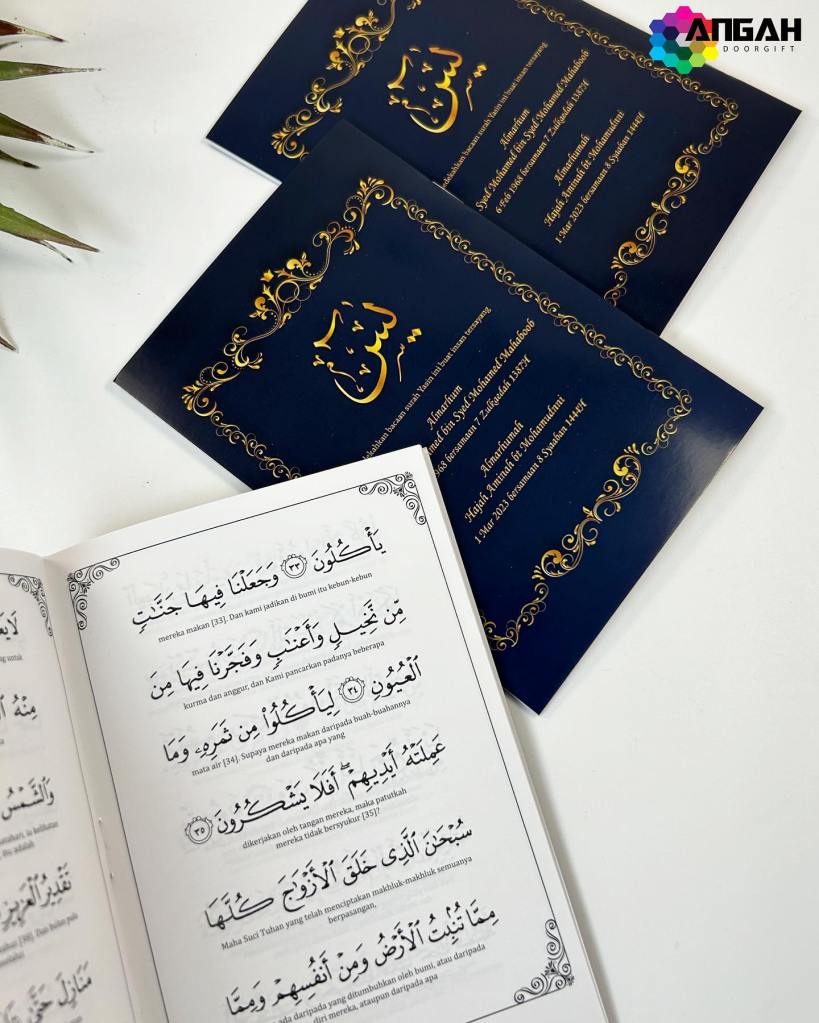 ANGAH
DOORGIFT
يسٓ
dekahkan bacaan surah Yasin ini buat insan tersayang
Almarhum
Syed Mohamed bin Syed Mohamed Mahaboob
6 Feb 1968 bersamaan 7 Zulkaedah 1387H
Almarhumah
Hajah Aminah bt Mohamudnni
1 Mar 2023 bersamaan 8 Syaaban 1444H
يسٓ
dekahkan bacaan surah Yasin ini buat insan tersayang
Almarhum
Mohamed bin Syed Mohamed Mahaboob
1968 bersamaan 7 Zulkaedah 1387H
Almarhumah
Hajah Aminah bt Mohamudnni
1 Mar 2023 bersamaan 8 Syaaban 1444H
يَأْكُلُونَ ٣٣ وَجَعَلْنَا فِيهَا جَنَّٰتٍ
mereka makan [33]. Dan kami jadikan di bumi itu kebun-kebun
مِّن نَّخِيلٍ وَأَعْنَٰبٍ وَفَجَّرْنَا فِيهَا مِنَ
kurma dan anggur, dan Kami pancarkan padanya beberapa
ٱلْعُيُونِ ٣٤ لِيَأْكُلُوا۟ مِن ثَمَرِهِۦ وَمَا
mata air [34]. Supaya mereka makan daripada buah-buahannya
dan daripada apa yang
عَمِلَتْهُ أَيْدِيهِمْ ۖ أَفَلَا يَشْكُرُونَ ٣٥
dikerjakan oleh tangan mereka, maka patutkah
mereka tidak bersyukur [35]?
سُبْحَٰنَ ٱلَّذِى خَلَقَ ٱلْأَزْوَٰجَ كُلَّهَا
Maha Suci Tuhan yang telah menciptakan makhluk-makhluk semuanya
berpasangan,
مِمَّا تُنۢبِتُ ٱلْأَرْضُ وَمِنْ أَنفُسِهِمْ وَمِمَّا
ada daripada yang ditumbuhkan oleh bumi, atau daripada
diri mereka, ataupun daripada apa
untuk
مِنْهُ
وَٱلشَّمْسُ
itu adalah
تَقْدِيرُ ٱلْعَزِيزِ
مَنَازِلَ حَتَّىٰ